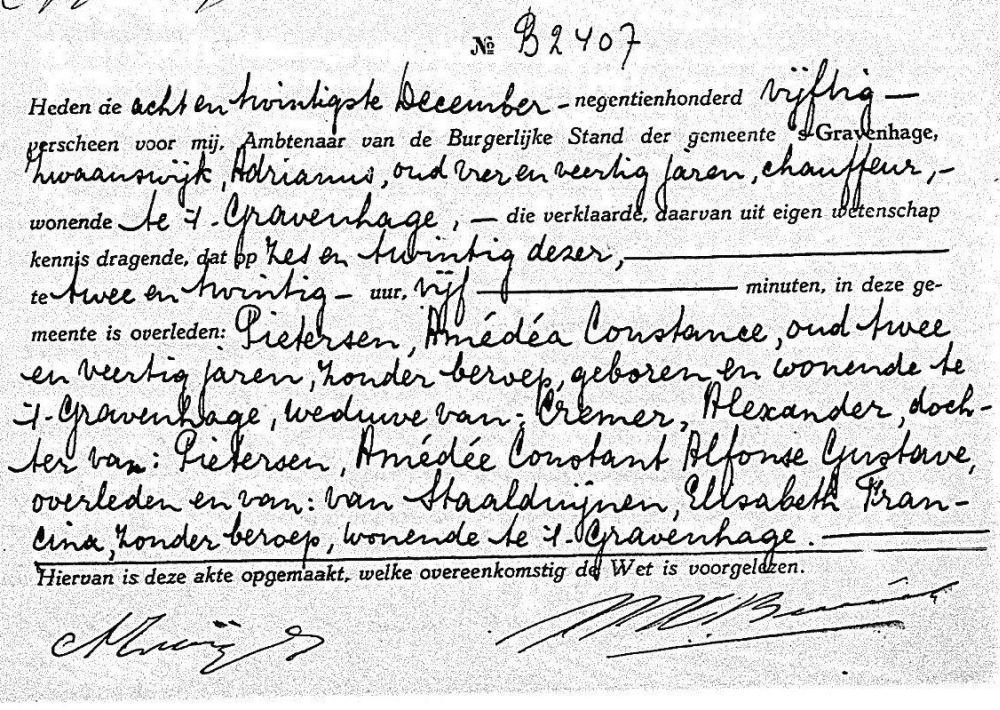 № B2407
Heden de acht en twintigste December - negentienhonderd vijftig —
verscheen voor mij, Ambtenaar van de Burgerlijke Stand der gemeente 's-Gravenhage,
Zwaanswijk, Adrianus, oud vier en veertig jaren, chauffeur, -
wonende te 's-Gravenhage, — die verklaarde, daarvan uit eigen wetenschap
kennis dragende, dat op zes en twintig dezer, —
te twee en twintig - uur, vijf — minuten, in deze ge-
meente is overleden: Pietersen, Amédéa Constance, oud twee
en veertig jaren, zonder beroep, geboren en wonende te
's-Gravenhage, weduwe van: Cremer, Alexander, doch-
ter van: Pietersen, Amédée Constant Alfonse Gustave,
overleden en van: van Staalduijnen, Elisabeth Fran-
cina, zonder beroep, wonende te 's-Gravenhage. —
Hiervan is deze akte opgemaakt, welke overeenkomstig de Wet is voorgelezen.